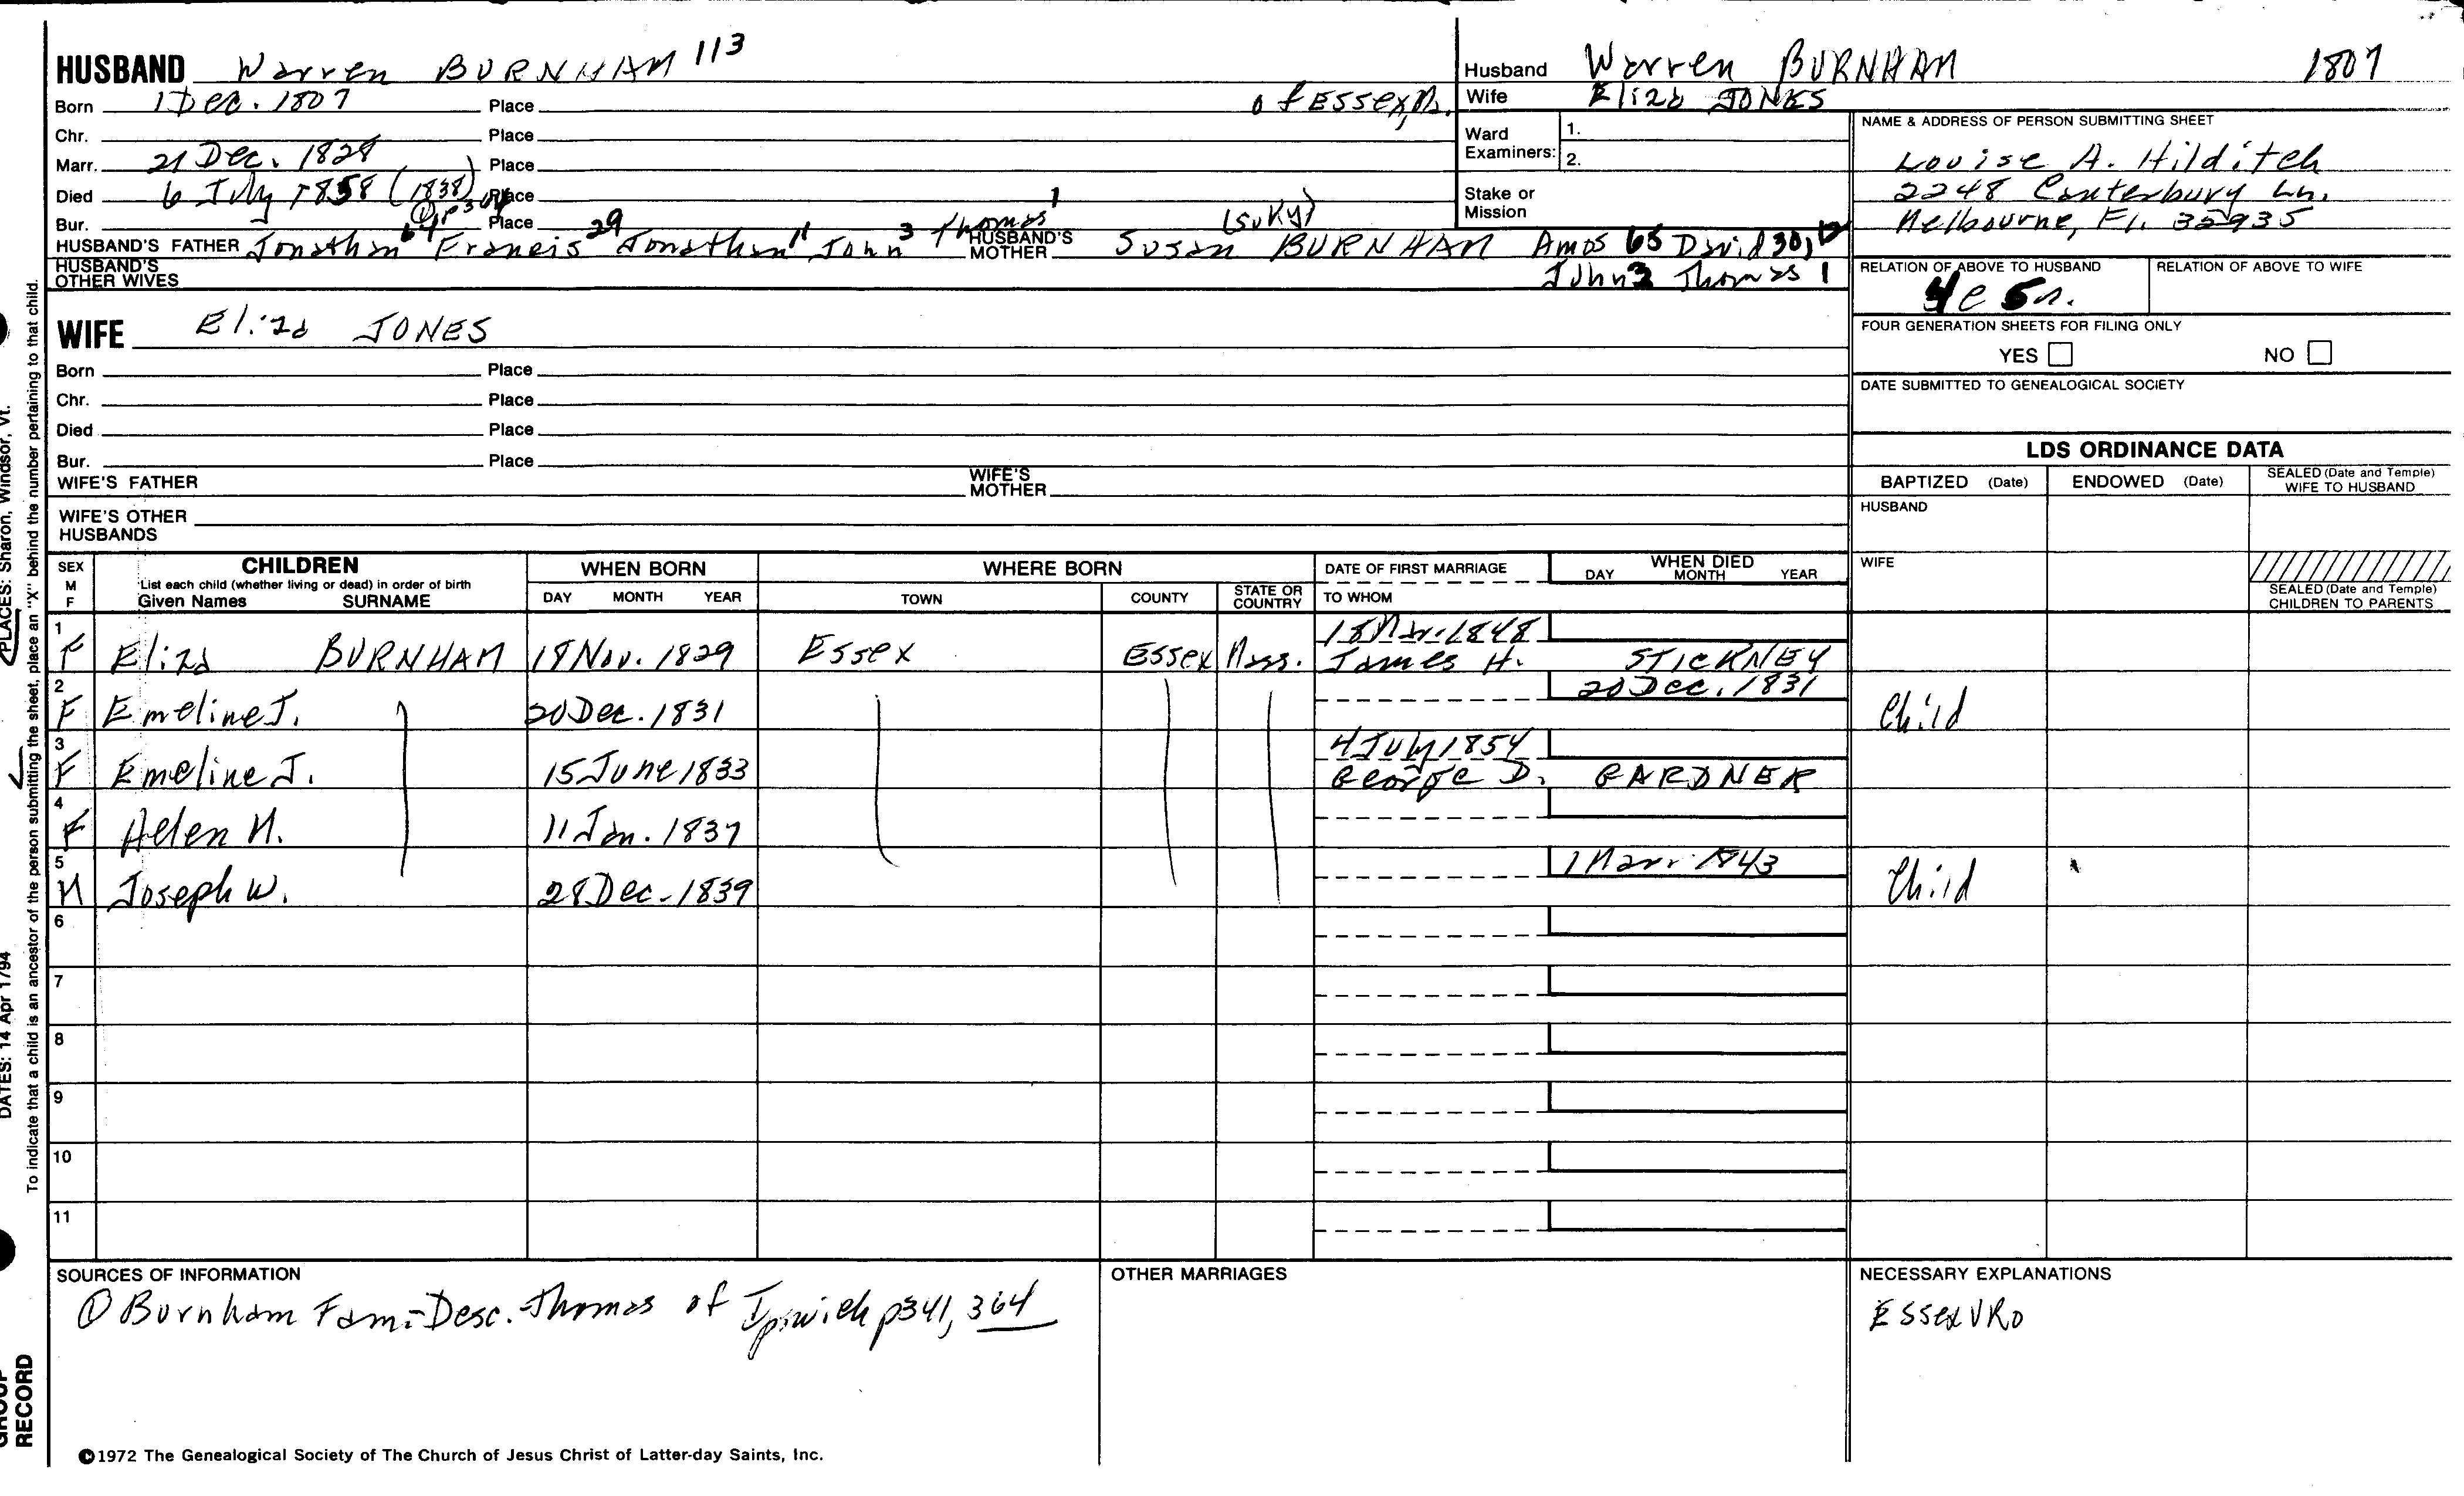 HUSBAND Warren BURNHAM 113
Born 1 Dec. 1807 Place of Essex, M.
Chr. Place
Marr. 21 Dec. 1828 Place
Died 6 July 1858 (1838) Place
Bur. Place
HUSBAND'S FATHER Jonathan Francis 29 Jonathan 11 John 3 Thomas 1 HUSBAND'S MOTHER Susan (Suky) BURNHAM Amos 65 David 30,
John 3 Thomas 1
HUSBAND'S OTHER WIVES
WIFE Eliza JONES
Born Place
Chr. Place
Died Place
Bur. Place
WIFE'S FATHER WIFE'S MOTHER
WIFE'S OTHER HUSBANDS
Husband Warren BURNHAM 1807
Wife Eliza JONES
Ward Examiners: 1.
2.
Stake or Mission
NAME & ADDRESS OF PERSON SUBMITTING SHEET
Louise A. Hilditch
2248 Canterbury Ln.
Melbourne, Fl. 32935
RELATION OF ABOVE TO HUSBAND RELATION OF ABOVE TO WIFE
FOUR GENERATION SHEETS FOR FILING ONLY
YES NO
DATE SUBMITTED TO GENEALOGICAL SOCIETY
LDS ORDINANCE DATA
BAPTIZED (Date) ENDOWED (Date) SEALED (Date and Temple) WIFE TO HUSBAND
HUSBAND
WIFE
SEALED (Date and Temple) CHILDREN TO PARENTS
SEX M F CHILDREN WHEN BORN WHERE BORN DATE OF FIRST MARRIAGE WHEN DIED
List each child (whether living or dead) in order of birth
Given Names SURNAME DAY MONTH YEAR TOWN COUNTY STATE OR COUNTRY TO WHOM DAY MONTH YEAR
1 18 Mar. 1848
F Eliza BURNHAM 18 Nov. 1829 Essex Essex Mass. James H. STICKNEY
2 20 Dec. 1831
F Emeline J. 20 Dec. 1831 Child
3 4 July 1854
F Emeline J. 15 June 1833 George D. GARDNER
4
F Helen M. 11 Jan. 1837
5 1 Mar. 1843
M Joseph W. 28 Dec. 1839 Child
6
7
8
9
10
11
SOURCES OF INFORMATION
① Burnham Fam.-Desc. Thomas of Ipswich p341, 364
OTHER MARRIAGES
NECESSARY EXPLANATIONS
Essex VRo
©1972 The Genealogical Society of The Church of Jesus Christ of Latter-day Saints, Inc.
PLACES: Sharon, Windsor, Vt.
DATES: 14 Apr 1794
To indicate that a child is an ancestor of the person submitting the sheet, place an "X" behind the number pertaining to that child.
GROUP
RECORD